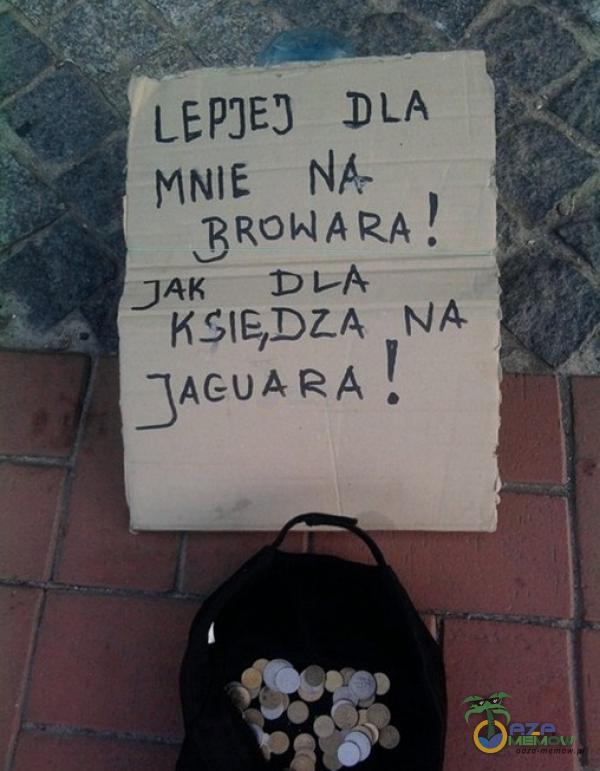 LEPJEJ DLA
MNIE NA
BROWARA!
JAK DLA
KSIĘDZA NA
JAGUARA!
Oaze
MEMOW
oaza-memow.pl